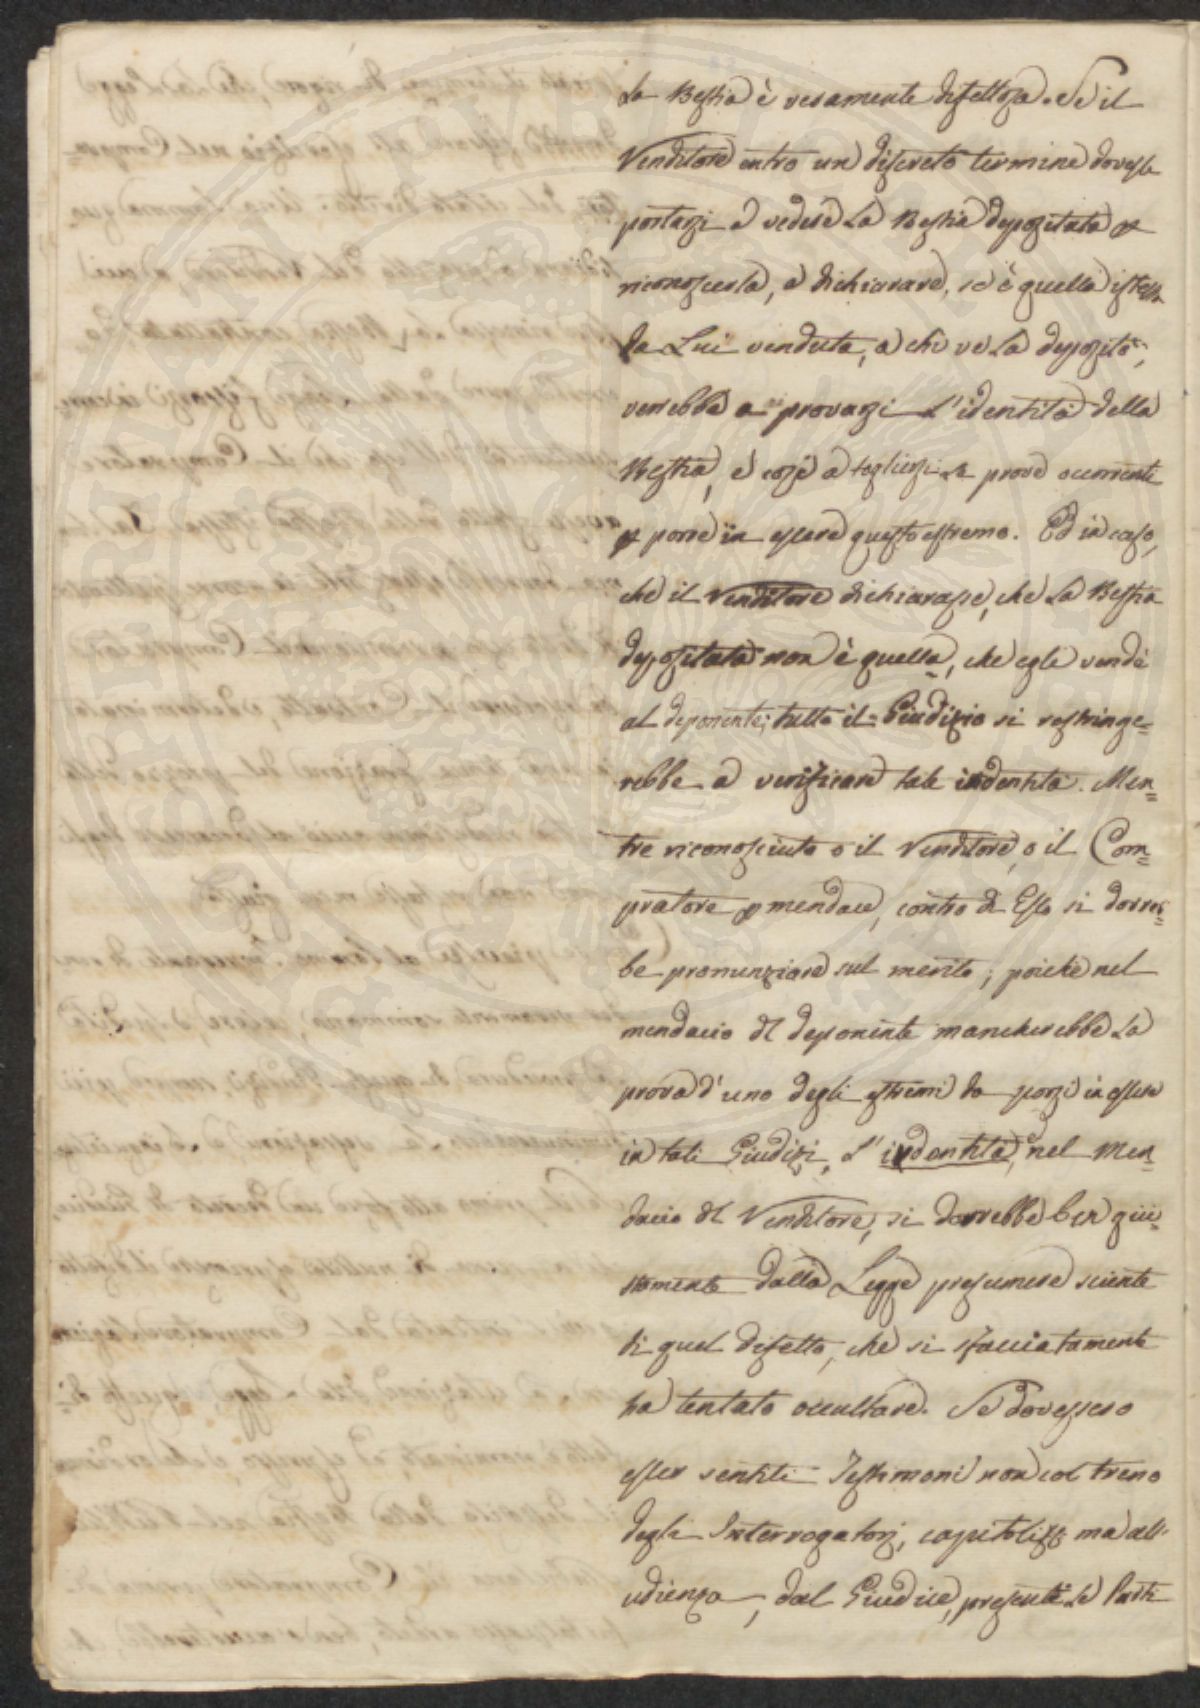 La Bestia è veramente difettosa. Se il
Venditore entro un discreto termine dovesse
portarsi a vedere la Bestia depositata p
riconoscerla, e dichiarare, se è quella istessa
da Lui venduta, a chi ve la depositò,
verrebbe a provarsi l'identità della
Bestia, e così a togliersi le prove occorrente
p porre in essere questo estremo. Ed in caso,
che il Venditore dichiarasse, che la Bestia
depositata non è quella, che egli vendè
al deponente; tutto il Giudizio si restringe=
rebbe a verificare tale indentità. Men=
tre riconosciuto o il Venditore, o il Com=
pratore p mendace, contro di Esso si dovreb=
be pronunziare sul merito; poichè nel
mendacio dl deponente mancherebbe la
prova d'uno degli estremi da porsi in essere
in tali Giudizi, l'indentità, nel Men=
dacio dl Venditore, si dovrebbe ben giu=
stamente dalla Legge presumere sciente
di quel difetto, che si sfacciatamente
ha tentato occultare. Se dovessero
esser sentiti Testimoni non col treno
degli Interrogatorj, capitoli ma all'
udienza, dal Giudice, presenti le Parti